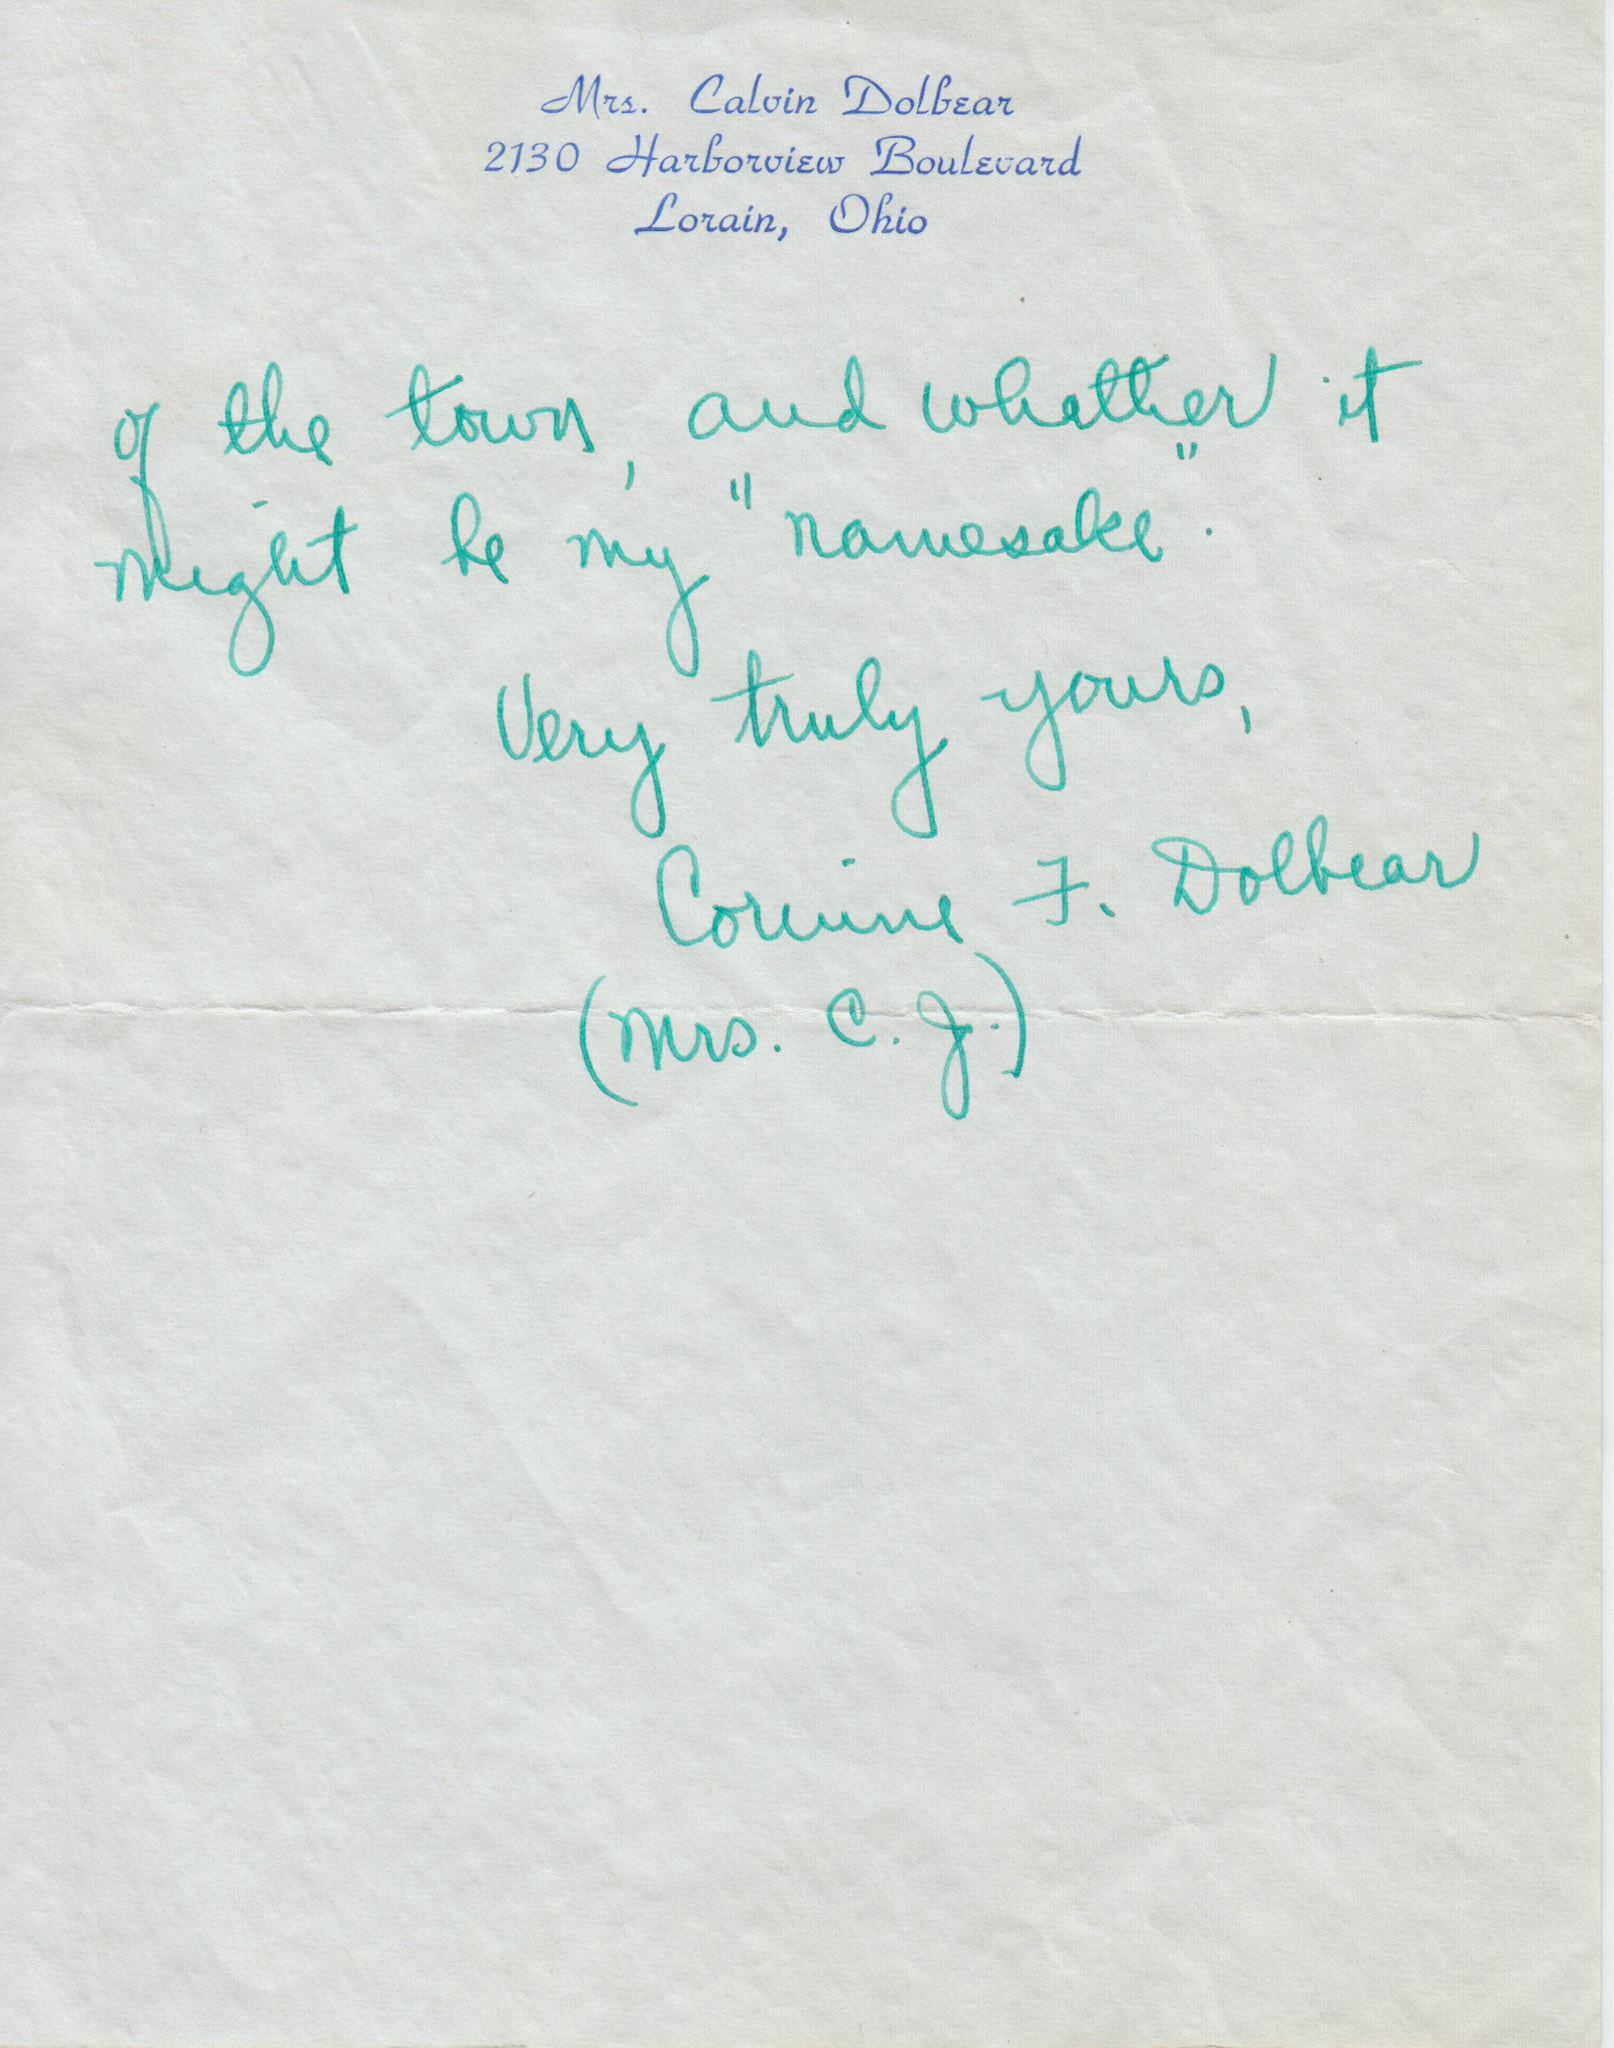 Mrs. Calvin Dolbear
2130 Harborview Boulevard
Lorain, Ohio
of the town, and whether it
might be my "namesake".
Very truly yours,
Corinne F. Dolbear
(Mrs. C. J.)